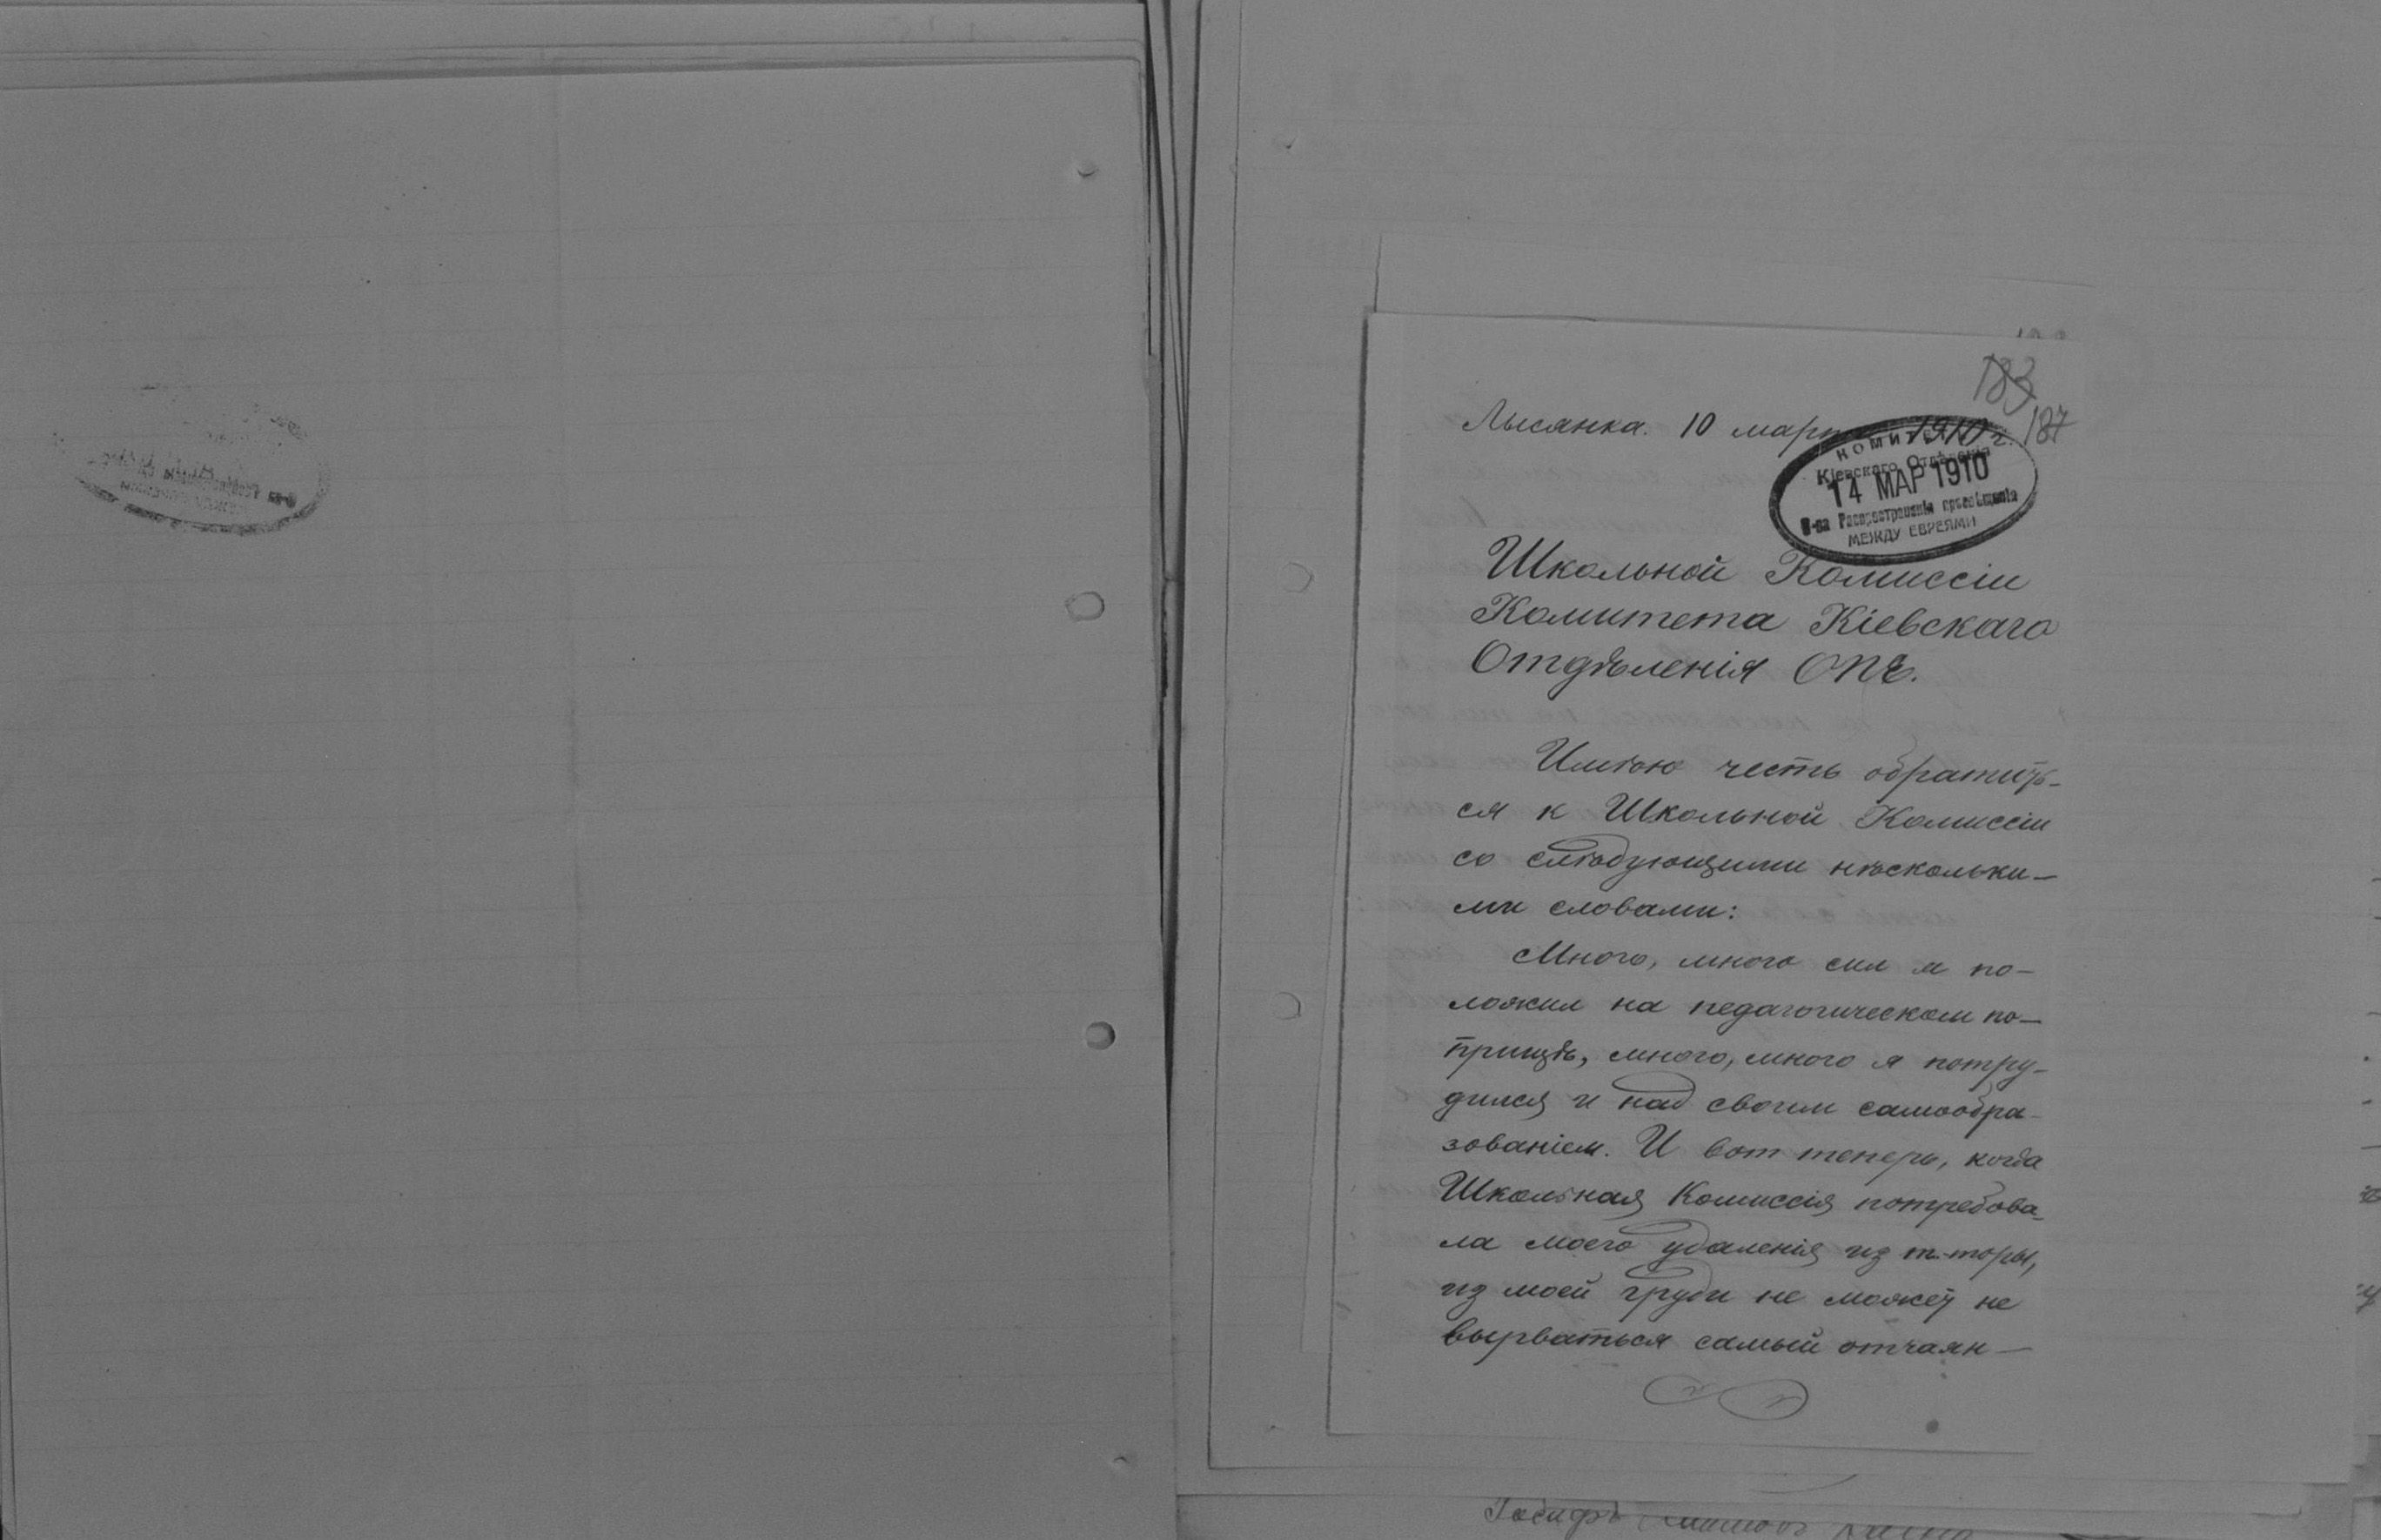 183
187
Лысянка. 10 марта 1910 г.
КОМИТЕТ
Кіевскаго Отдѣленія
14 МАР 1910
О-ва Распространенія просвѣщенія
МЕЖДУ ЕВРЕЯМИ
Школьной Комиссіи
Комитета Кіевскаго
Отдѣленія ОПЕ.
Имѣю честь обратить-
ся к Школьной Комиссіи
со слѣдующими нѣскольки-
ми словами:
Много, много сил я по-
ложил на педагогическом по-
прищѣ, много, много я потру-
дился и над своим самообра-
зованіем. И вот теперь, когда
Школьная Комиссія потребова-
ла моего удаленія из т.-торы,
из моей груди не может не
вырваться самый отчаян-
Іосифъ